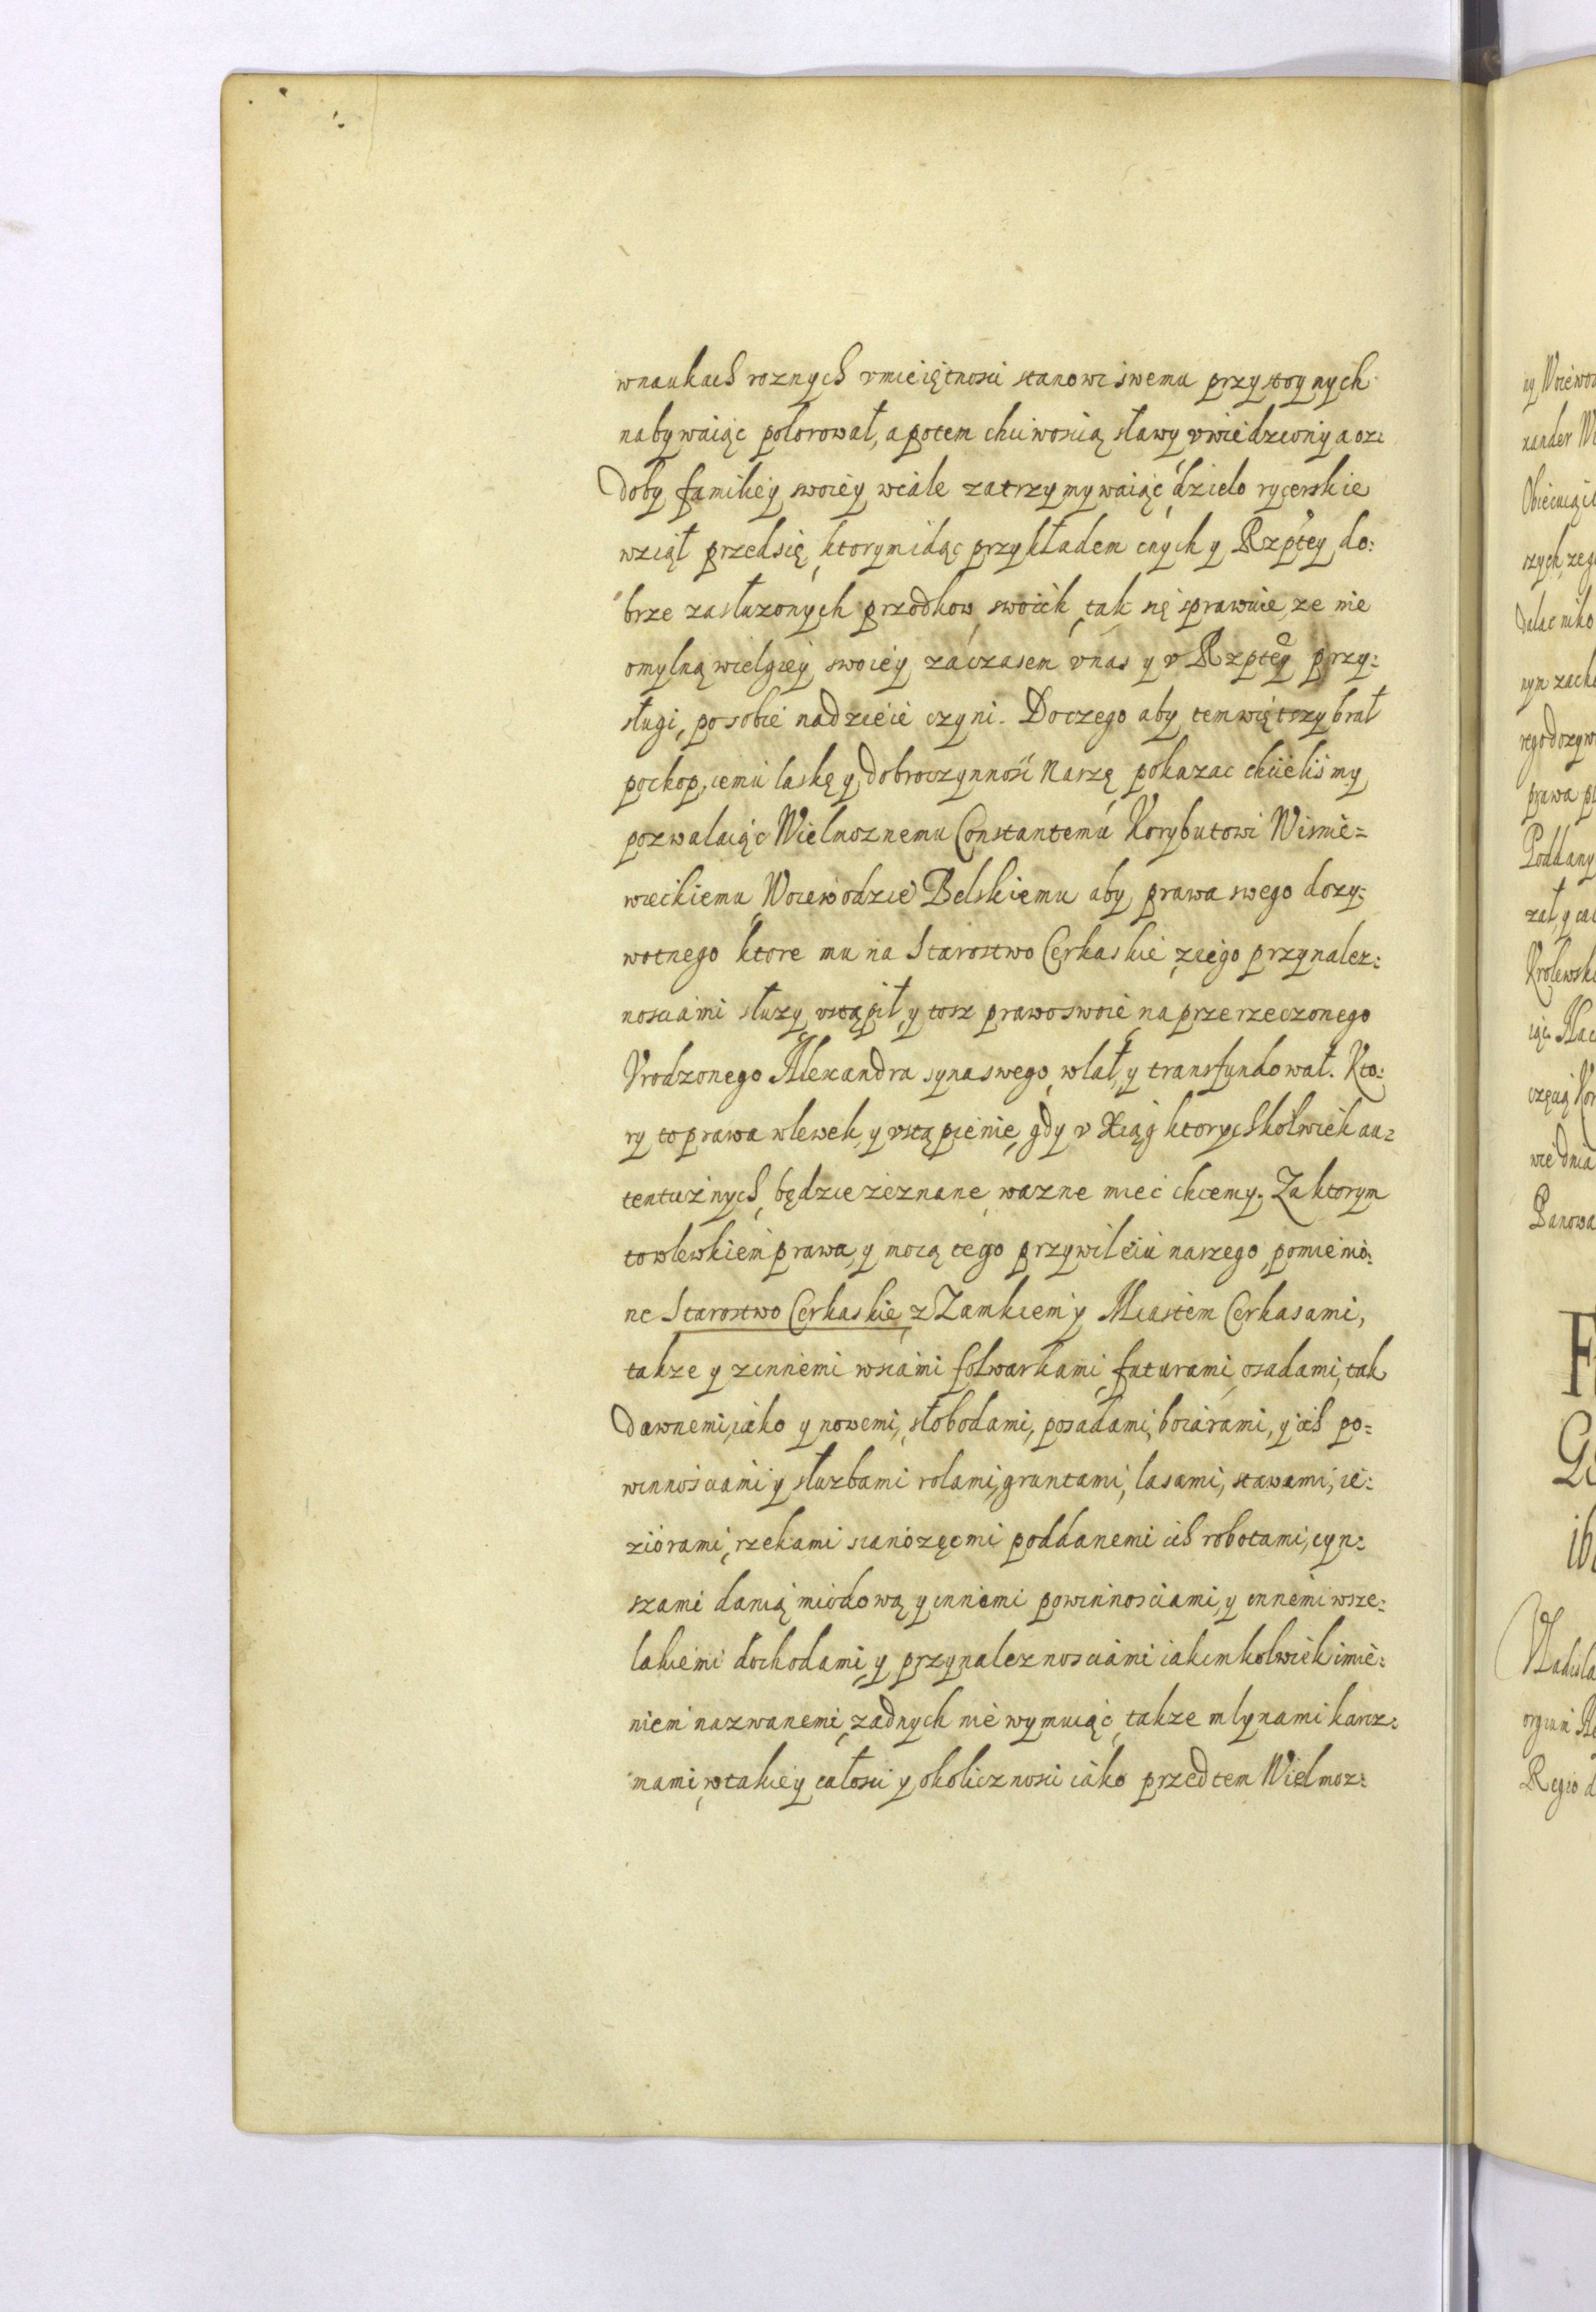 w naukach roznych vmieiętnosci stanowi swemu przystoynych
nabywaiąc polorował, a potem chciwoscią sławy vwiedziony a oz:
doby familiey swoiey wcale zatrzymywaiąc, dzieło rycerskie
wziął przedsię, ktorym idąc przykładem cnych y Rzptey do:
brze zasłuzonych przodkow swoich, tak się sprawuie, ze nie
omylną wielgiey swoiey za czasem v nas y v Rzptey przy:
sługi, po sobie nadzieie czyni. Do czego aby tem większy brał
pochop, iemu laskę y dobroczynność Naszę pokazac chcielismy
pozwalaiąc Wielmoznemu Constantemu Korybutowi Wisnie=
wieckiemu Woiewodzie Belskiemu aby prawa swego dozy:
wotnego ktore mu na Starostwo Cerkaskie z iego przynalez:
nosciami słuzy vstąpił, y tosz prawo swoie na przerzeczonego
Vrodzonego Alexandra syna swego, wlał, y transfundował. Kto:
ry to prawa wlewek, y vstąpienie, gdy v Xiąg ktorychkolwiek au=
tentycznych, będzie zeznane, wazne miec chcemy. Za ktorym
to wlewkiem prawa, y mocą tego przywileiu naszego, pomienio:
ne Starostwo Cerkaskie, z Zamkiem y Miastem Cerkasami,
takze y z innemi wsiami folwarkami, futurami, osadami, tak
dawnemi, iako y nowemi, słobodami, posadami, boiarami, y ich po=
winnosciami y słuzbami rolami, gruntami, lasami, stawami, ie:
ziorami, rzekami sianożęcmi poddanemi ich robotami, czyn:
szami danią miodową y innemi powinnosciami, y innemi wsze:
lakiemi dochodami, y przynaleznosciami iakimkolwiek imie:
niem nazwanemi, zadnych nie wymuiąc, takze mlynami karcz:
mami, w takiey całosci y okolicznosci iako przedtem Wielmoz: